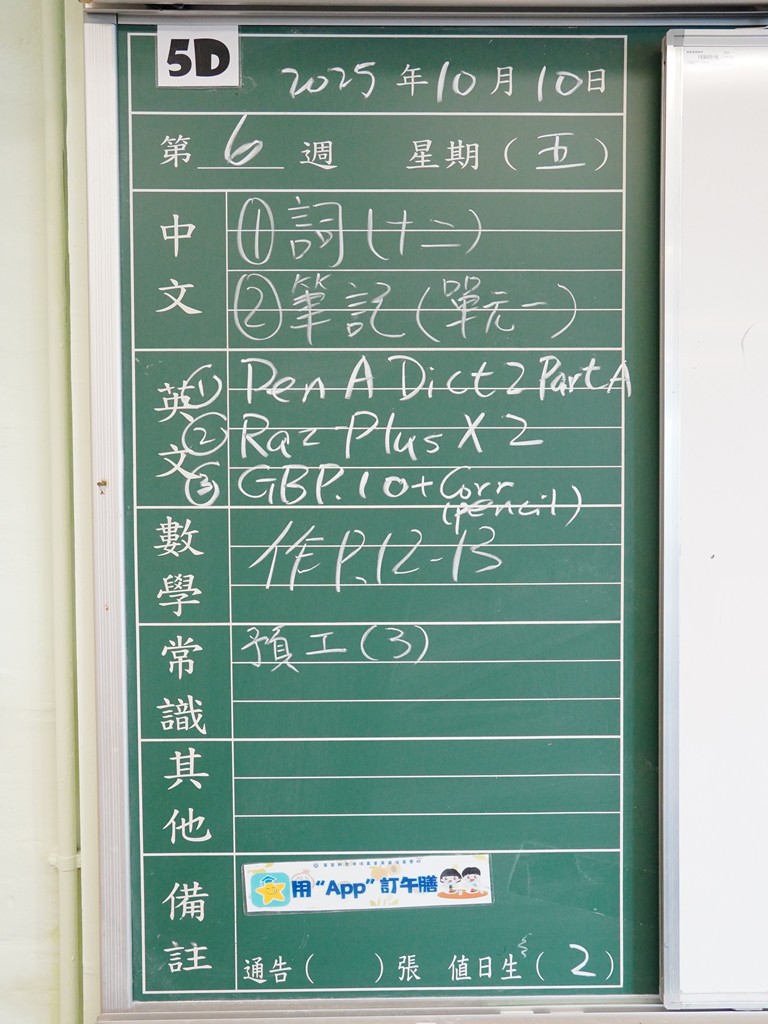 5D
2025年10月10日
第6週 星期(五)
中文
①詞(十二)
②筆記(單元一)
英文
① Pen A Dict 2 Part A
② Raz-Plus X 2
③ GB P.10 + Corr
(pencil)
數學
作P.12-13
常識
預工(3)
其他
備註
用“App”訂午膳
通告( )張 值日生(2)